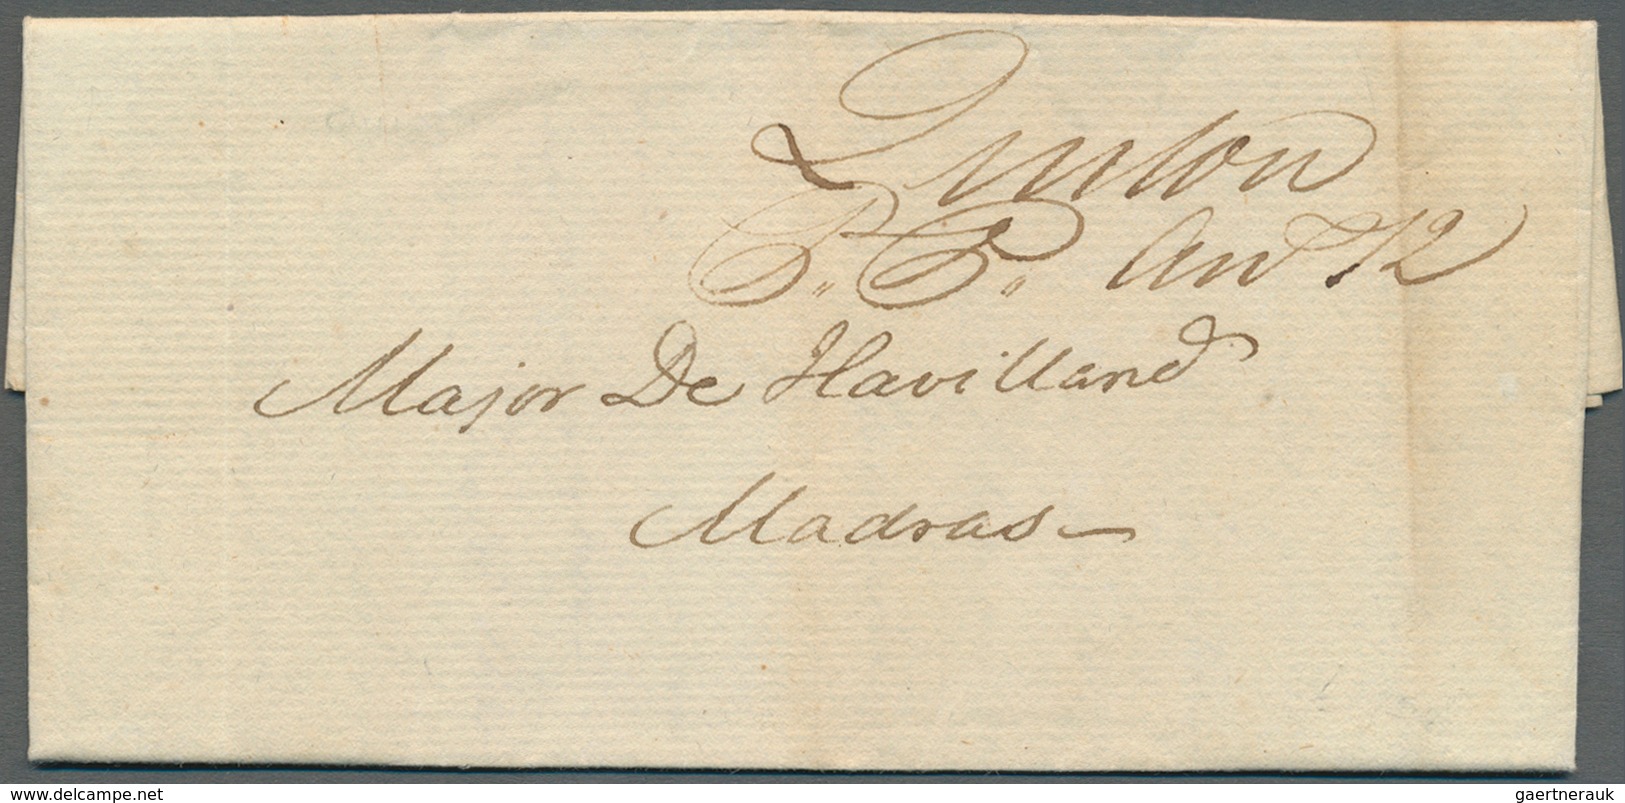 Quilon
P.. P.. An.s 12
Major De Havilland
Madras
www.delcampe.net
gaertnerauk